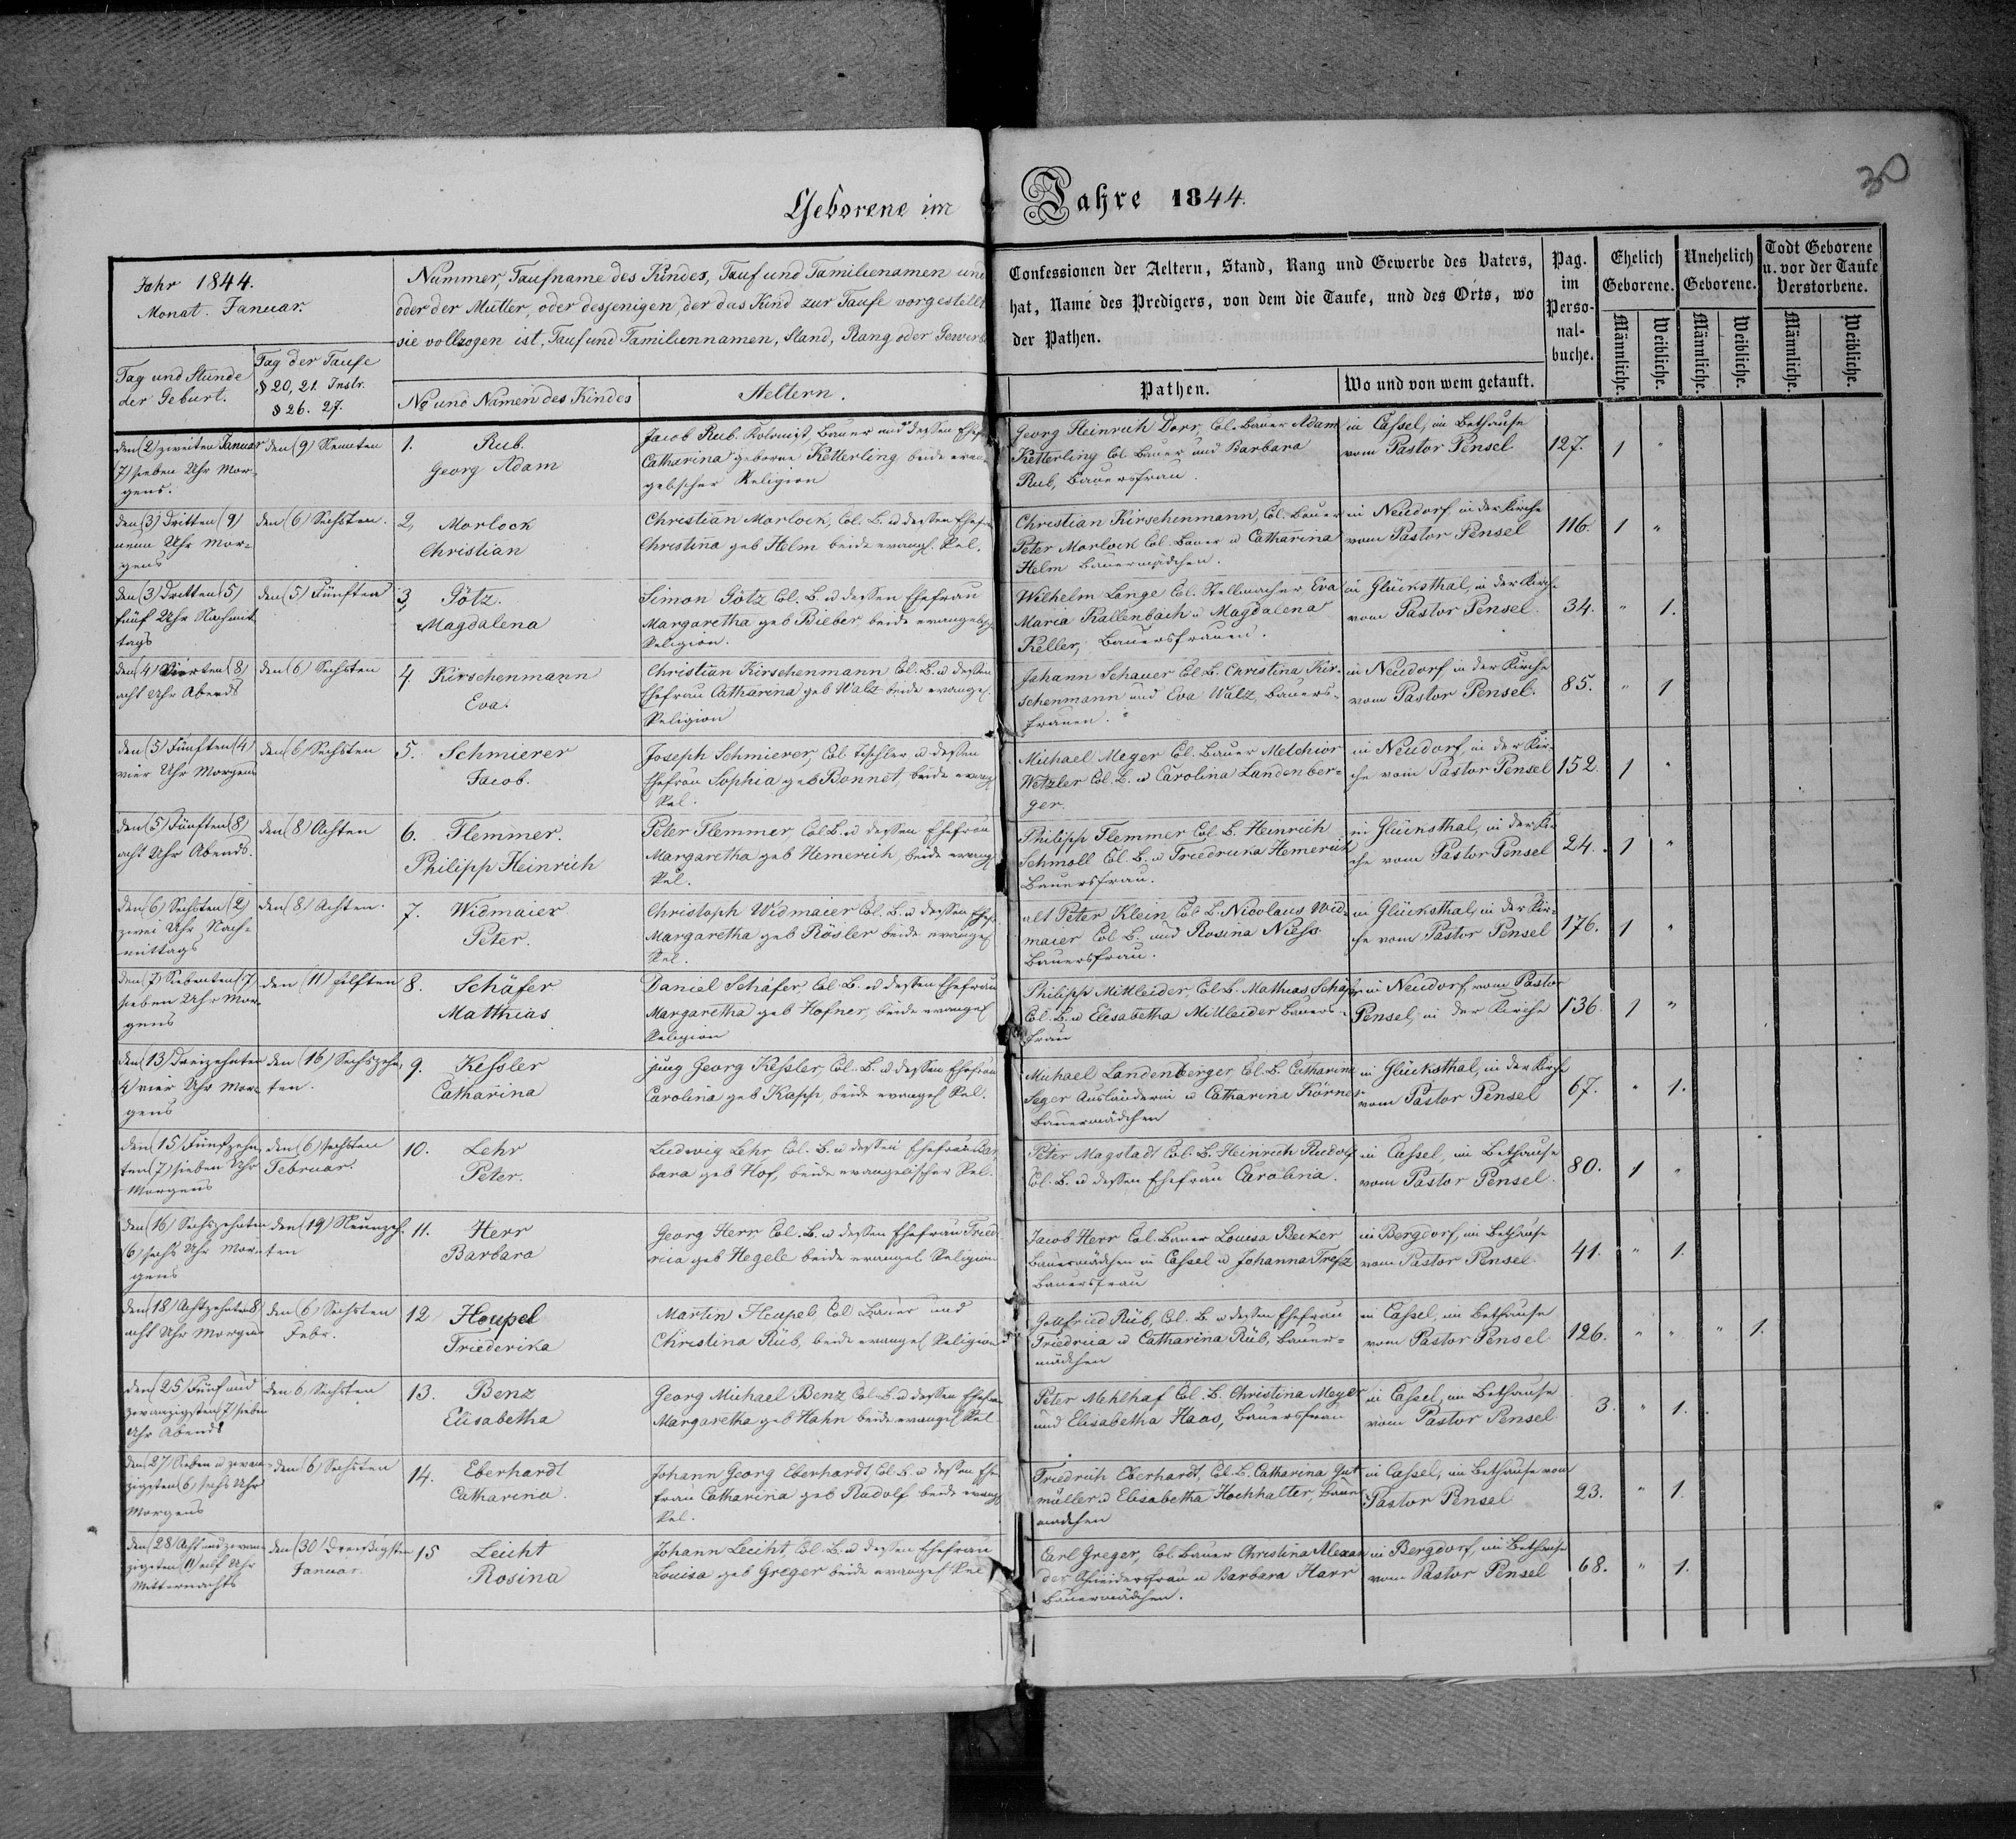 30
Geborene im Jahre 1844.
Jahr 1844.
Monat. Januar.
Tag und Stunde
der Geburt.
Tag der Taufe
§ 20, 21. Instr.
§ 26. 27.
Nummer, Taufname des Kindes, Tauf und Familienamen und
oder der Mutter, oder desjenigen, der das Kind zur Taufe vorgestellt
sie vollzogen ist, Tauf und Familiennamen, Stand, Rang oder Gewerbe
No und Namen des Kindes
Aeltern.
Confessionen der Aeltern, Stand, Rang und Gewerbe des Vaters,
hat, Name des Predigers, von dem die Taufe, und des Orts, wo
der Pathen.
Pathen.
Wo und von wem getauft.
Pag.
im
Perso-
nal-
buche.
Ehelich
Geborene.
Unehelich
Geborene.
Todt Geborene
u. vor der Taufe
Verstorbene.
Männliche.
Weibliche.
Männliche.
Weibliche.
Männliche.
Weibliche.
den (2) zweiten Januar
(7) sieben Uhr Mor-
gens.
den (9) Neunten
1. Rub.
Georg Adam
Jacob Rub. Kolonist, Bauer und dessen Ehefr
Catharina geborne Ketterling beide evan-
gelischer Religion
Georg Heinrich Dorr, Col. Bauer Adam
Ketterling Col. Bauer und Barbara
Rub, Bauersfrau.
in Cassel, im Bethause
vom Pastor Pensel
127. 1 "
den (3) Dritten (9)
neun Uhr Mor-
gens
den (6) Sechsten.
2, Morlock
Christian
Christian Morlock, Col. B. u dessen Ehefr
Christina geb Helm beide evangl. Rel.
Christian Kirschenmann, Col. Bauer
Peter Morlock Col. Bauer u Catharina
Helm Bauermädchen.
in Neudorf in der Kirche
vom Pastor Pensel
116. 1 "
den (3) Dritten (5)
fünf Uhr Nachmit
tags
den (5) Fünften
3, Götz.
Magdalena
Simon Götz Col. B. u dessen Ehefrau
Margaretha geb Bieber, beide evangelisch
Religion.
Wilhelm Lange Col. Stellmacher Eva
Maria Kallenbach u Magdalena
Keller, Bauersfrauen.
in Glücksthal, in der Kirche
vom Pastor Pensel.
34. " 1.
den (4) Vierten (8)
acht Uhr Abends
den (6) Sechsten
4 Kirschenmann
Eva.
Christian Kirschenmann Col. B. u dessen
Ehefrau Catharina geb Walz beide evangel.
Religion
Johann Schauer Col B. Christina Kir-
schenmann und Eva Walz, Bauers-
frauen.
in Neudorf in der Kirche
vom Pastor Pensel.
85. " 1
den (5) Fünften (4)
vier Uhr Morgens
den (6) Sechsten
5. Schmierer
Jacob.
Joseph Schmierer, Col. Tischler u dessen
Ehefrau Sophia geb Bonnet, beide evang
Rel.
Michael Meger Col. Bauer Melchior
Wetzler Col. B. u Carolina Landenber-
ger.
in Neudorf, in der Kir-
che vom Pastor Pensel
152. 1 "
den (5) Fünften (8)
acht Uhr Abends.
den (8) Achten
6. Flemmer.
Philipp Heinrich
Peter Flemmer, Col B. u dessen Ehefrau
Margaretha geb Hemerich, beide evang
Rel.
Philipp Flemmer Col B. Heinrich
Schmoll Col. B. u Friedricka Hemerich
Bauersfrau.
in Glücksthal, in der Kir
che vom Pastor Pensel
24. 1 "
den (6) Sechsten (2)
zwei Uhr Nach-
mittags
den (8) Achten.
7. Widmaier
Peter.
Christoph Widmaier Col. B. u dessen Ehefr.
Margaretha geb Rösler beide evangel
Rel.
alt Peter Klein Col B. Nicolaus Wid-
maier Col B. und Rosina Niess
Bauersfrau.
in Glücksthal, in der Kir-
che vom Pastor Pensel
176. 1 "
den (7) Siebenten (7)
sieben Uhr Mor-
gens
den (11) Eilften
8. Schäfer
Matthias
Daniel Schäfer Col. B. u dessen Ehefrau
Margaretha geb Hofner, beide evangel
Religion
Philipp Mittleider, Col B. Mathias Schäfer
Col. B. u Elisabetha Mittleider Bauers-
frau
in Neudorf vom Pastor
Pensel, in der Kirche
136. 1 "
den (13) Dreizehnten
4) vier Uhr Mor-
gens
den (16) Sechszehn
ten.
9. Kessler
Catharina
jung Georg Kessler, Col. B. u dessen Ehefrau
Carolina geb Kapp beide evangel Rel.
Michael Landenberger Col. B. Catharina
Seger Ausländerin u Catharina Körner
Bauermädchen
in Glücksthal, in der Kirche
vom Pastor Pensel
67. " 1.
den (15) Fünfzehn
ten (7) sieben Uhr
Morgens
den (6) sechsten
Februar.
10. Lehr
Peter.
Ludwig Lehr Col. B. u dessen Ehefrau Bar
bara geb Hof, beide evangelischer Rel.
Peter Magstadt Col. B. Heinrich Rudolf
Col. B. u dessen Ehefrau Carolina.
in Cassel, im Bethause
vom Pastor Pensel.
80. 1 "
den (16) Sechszehnten
(6) sechs Uhr Mor-
gens
den (19) Neunzeh.
ten
11. Herr
Barbara
Georg Herr Col. B. u dessen Ehefrau Fried
rica geb Hegele beide evangel Religion
Jacob Herr Col. Bauer Louisa Becker
Bauermädchen in Cassel u Johanna Tresz
Bauersfrau
in Bergdorf, im Bethause
vom Pastor Pensel.
41. " 1.
den (18) Achtzehnten 8)
acht Uhr Morgens
den (6) Sechsten
Febr.
12 Heupel
Friederika
Martin Heupel, Col Bauer und
Christina Rüb, beide evangel Religion
Gottfried Rüb, Col. B. u dessen Ehefrau
Friedrica u Catharina Rüb, Bauer-
mädchen
in Cassel, im Bethause
vom Pastor Pensel
126. " " " 1.
den (25) Fünf und
zwanzigsten 7) sieben
Uhr Abends
den 6) Sechsten
13. Benz
Elisabetha
Georg Michael Benz Col B. u dessen Ehefra
Margaretha geb Hahn beide evangel Rel.
Peter Mehlhaf Col. B. Christina Meyer
und Elisabetha Haas, Bauersfrau
in Cassel, im Bethause
vom Pastor Pensel
3. " 1.
den 27) Sieben u zwan
zigsten (6) sechs Uhr
Morgens
den (6) Sechsten
14. Eberhardt
Catharina.
Johann Georg Eberhardt, Col. B. u dessen Ehe
frau Catharina geb Rudolf beide evang
Rel.
Friedrich Eberhardt, Col. B. Catharina Gut
müller u Elisabetha Hochhalter, Bauer
mädchen
in Cassel, im Bethause vom
Pastor Pensel
23. " 1.
den (28) Acht und zwan
zigsten (11) elf Uhr
Mitternachts
den (30) Dreissigsten
Januar.
15 Leicht
Rosina
Johann Leicht, Col. B. u dessen Ehefrau
Louisa geb Greger beide evangel Rel
Carl Greger, Col. Bauer Christina Alexan
der Schneidersfrau u Barbara Harr
Bauermädchen.
in Bergdorf, im Bethause
vom Pastor Pensel
68. " 1.